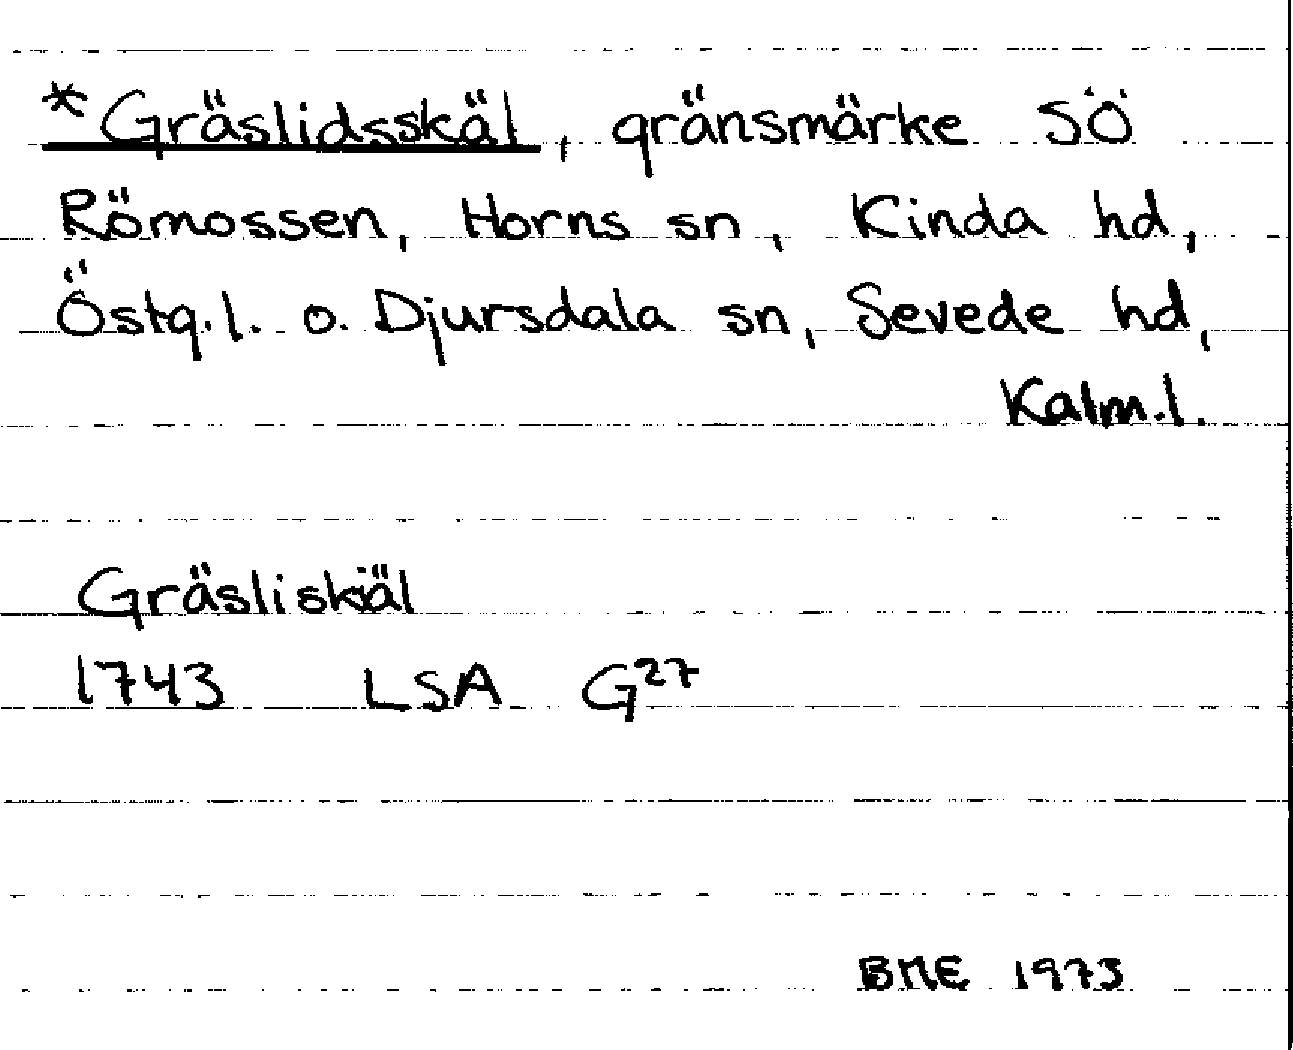 *Gräslidsskäl, gränsmärke SÖ
Römossen, Horns sn, Kinda hd,
Östg.l. o. Djursdala sn, Sevede hd,
Kalm.l.
Gräsliskiäl
1743 LSA G²⁷
BME 1973